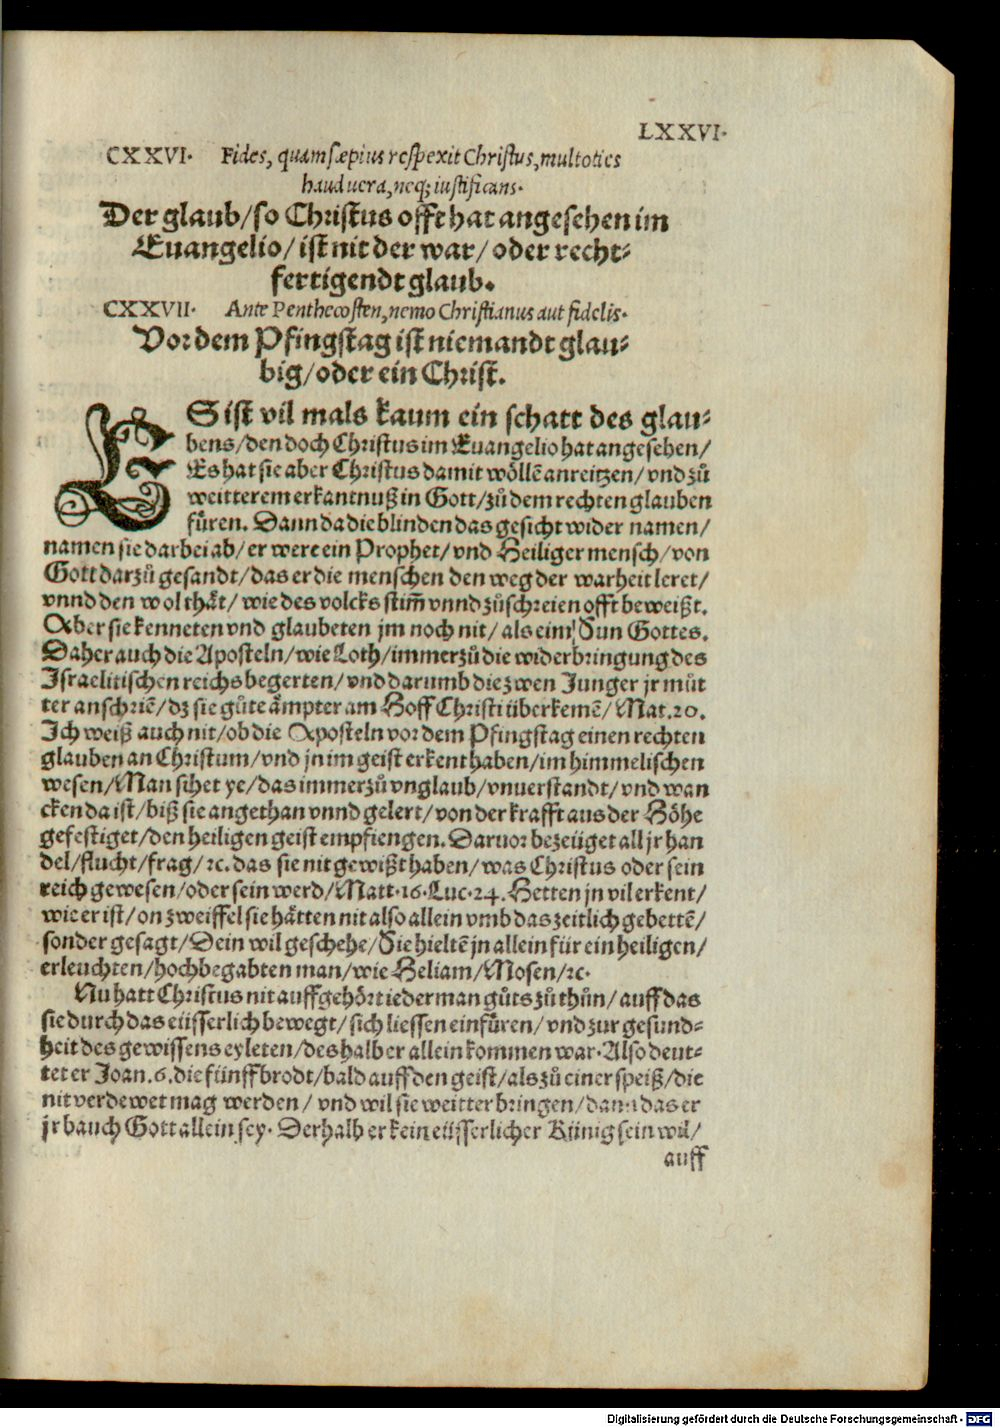 LXXVI.
CXXVI. Fides, quam sæpius respexit Christus, multoties
haud uera, neq; iustificans.
Der glaub/so Christus offt hat angesehen im
Euangelio/ ist nit der war/ oder recht-
fertigendt glaub.
CXXVII. Ante Penthecosten, nemo Christianus aut fidelis.
Vor dem Pfingstag ist niemandt glau-
big/oder ein Christ.
ES ist vil mals kaum ein schatt des glau-
bens/den doch Christus im Euangelio hat angesehen/
Es hat sie aber Christus damit wöllē anreitzen/vnd zů
weitterem erkantnuß in Gott/zů dem rechten glauben
fůren. Dann da die blinden das gesicht wider namen/
namen sie darbei ab/ er were ein Prophet/ vnd Heiliger mensch/von
Gott darzů gesandt/das er die menschen den weg der warheit leret/
vnnd den wol thät/ wie des volcks stim̄ vnnd zůschreien offt beweißt.
Aber sie kenneten vnd glaubeten jm noch nit/ als eim Sun Gottes.
Daher auch die Aposteln/wie Loth/immerzů die widerbringung des
Israelitischen reichs begerten/vnd darumb die zwen Junger jr můt
ter anschriē/dz sie gůte ämpter am Hoff Christi überkemē/ Mat.20.
Ich weiß auch nit/ob die Aposteln vor dem Pfingstag einen rechten
glauben an Christum/vnd jn im geist erkent haben/im himmelischen
wesen/Man sihet ye/das immerzů vnglaub/vnuerstandt/vnd wan
cken da ist/biß sie angethan vnnd gelert/von der krafft aus der Höhe
gefestiget/den heiligen geist empfiengen. Daruor bezeüget all jr han
del/flucht/frag/ꝛc. das sie nit gewißt haben/was Christus oder sein
reich gewesen/oder sein werd/Matt.16. Luc.24. Hetten jn vil erkent/
wie er ist/on zweiffel sie hätten nit also allein vmb das zeitlich gebettē/
sonder gesagt/Dein wil geschehe/Sie hieltē jn allein für ein heiligen/
erleuchten/hochbegabten man/wie Heliam/Mosen/ꝛc.
Nu hatt Christus nit auffgehört iederman gůts zů thůn/ auff das
sie durch das eüsserlich bewegt/sich liessen einfůren/ vnd zur gesund-
heit des gewissens eyleten/deshalb er allein kommen war. Also deut-
tet er Joan.6. die fünff brodt/bald auff den geist/als zů einer speiß/die
nit verdewet mag werden/ vnd wil sie weitter bringen/dann das er
jr bauch Gott allein sey. Derhalb er kein eüsserlicher Künig sein wil/
auff
Digitalisierung gefördert durch die Deutsche Forschungsgemeinschaft - DFG